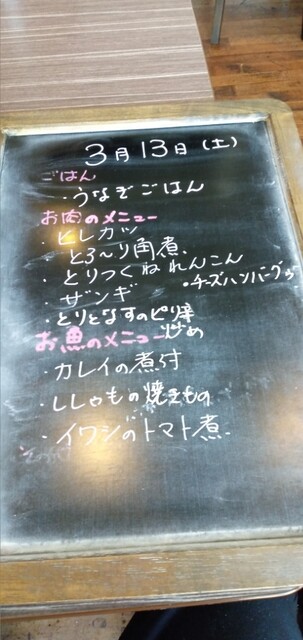 3月13日(土)
ごはん
・うなぎごはん
お肉のメニュー
・ヒレカツ
・とろ〜り角煮
・とりつくねれんこん
・チーズハンバーグ
・ザンギ
・とりとなすのピリ辛炒め
お魚のメニュー
・カレイの煮付
・ししゃもの焼きもの
・イワシのトマト煮